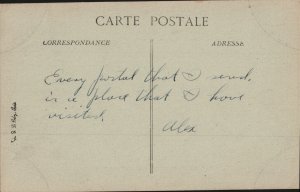 CARTE POSTALE
CORRESPONDANCE
ADRESSE
Every postal that I send,
is a place that I have
visited.
Alex